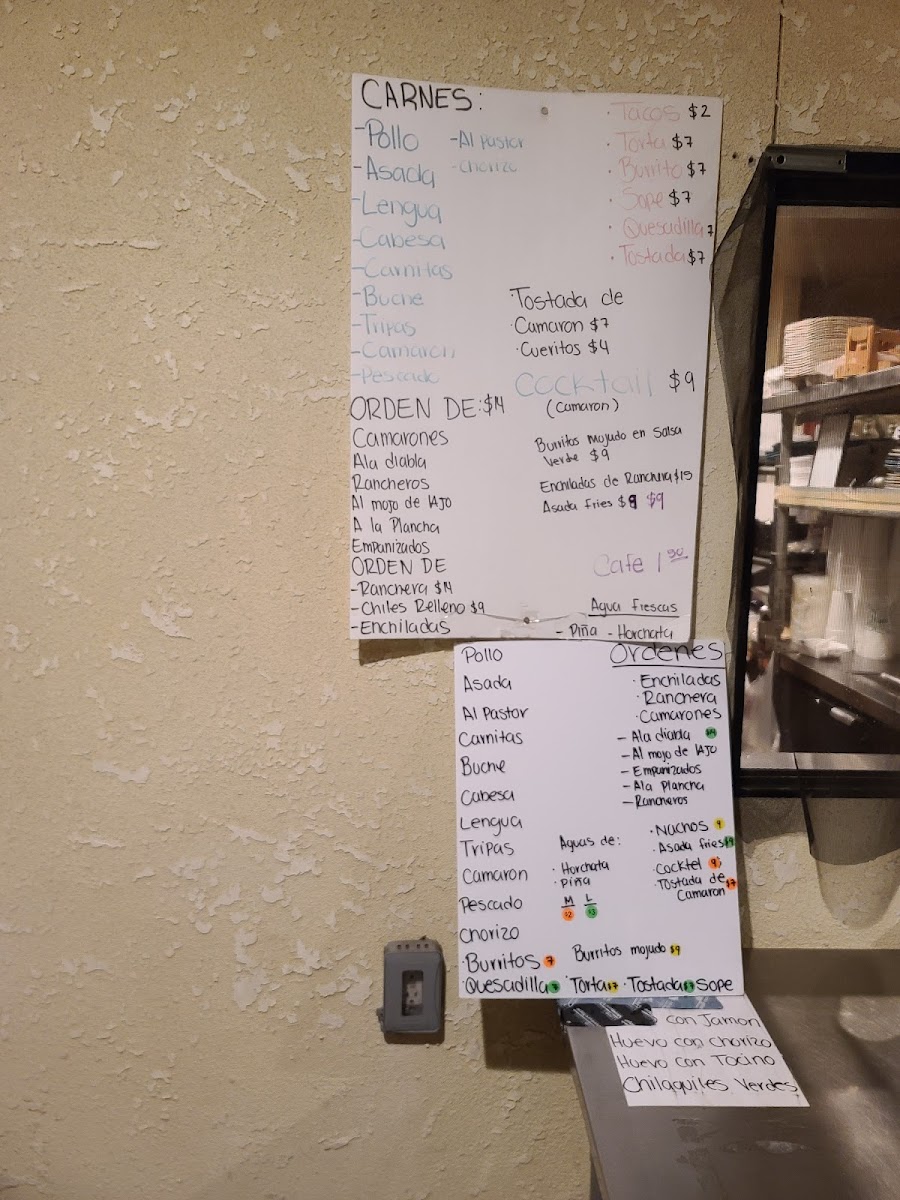 CARNES:
-Pollo -Al Pastor
-Asada -Chorizo
-Lengua
-Cabesa
-Carnitas
-Buche
-Tripas
-Camaron
-Pescado
· Tacos $2
· Torta $7
· Burrito $7
· Sope $7
· Quesadilla 7
· Tostada $7
·Tostada de
·Camaron $7
·Cueritos $4
COCKtail $9
(Camaron)
ORDEN DE:$14
Camarones
Ala diabla
Rancheros
Al mojo de IAJO
A la Plancha
Empanizados
ORDEN DE
-Ranchera $14
-Chiles Relleno $9
-Enchiladas
Burritos mojudo en Salsa
Verde $9
Enchiladas de Ranchera $15
Asada Fries $9 $9
Cafe 1 50
Agua frescas
- Piña - Horchata
Pollo
Asada
Al Pastor
Carnitas
Buche
Cabesa
Lengua
Tripas
Camaron
Pescado
Chorizo
Ordenes
·Enchiladas
·Ranchera
·Camarones
- Ala diabla
-Al mojo de IAJO
-Empanizados
-Ala Plancha
-Rancheros
·Nachos 9
·Asada fries $9
·Cocktel 9
·Tostada de $7
Camaron
Aguas de:
· Horchata
· Piña
M L
$2 $3
·Burritos 7 Burritos mojudo $9
·Quesadilla 7 ·Torta $7 ·Tostada $7 Sope
con Jamon
Huevo con Chorizo
Huevo con Tocino
Chilaquiles Verdes